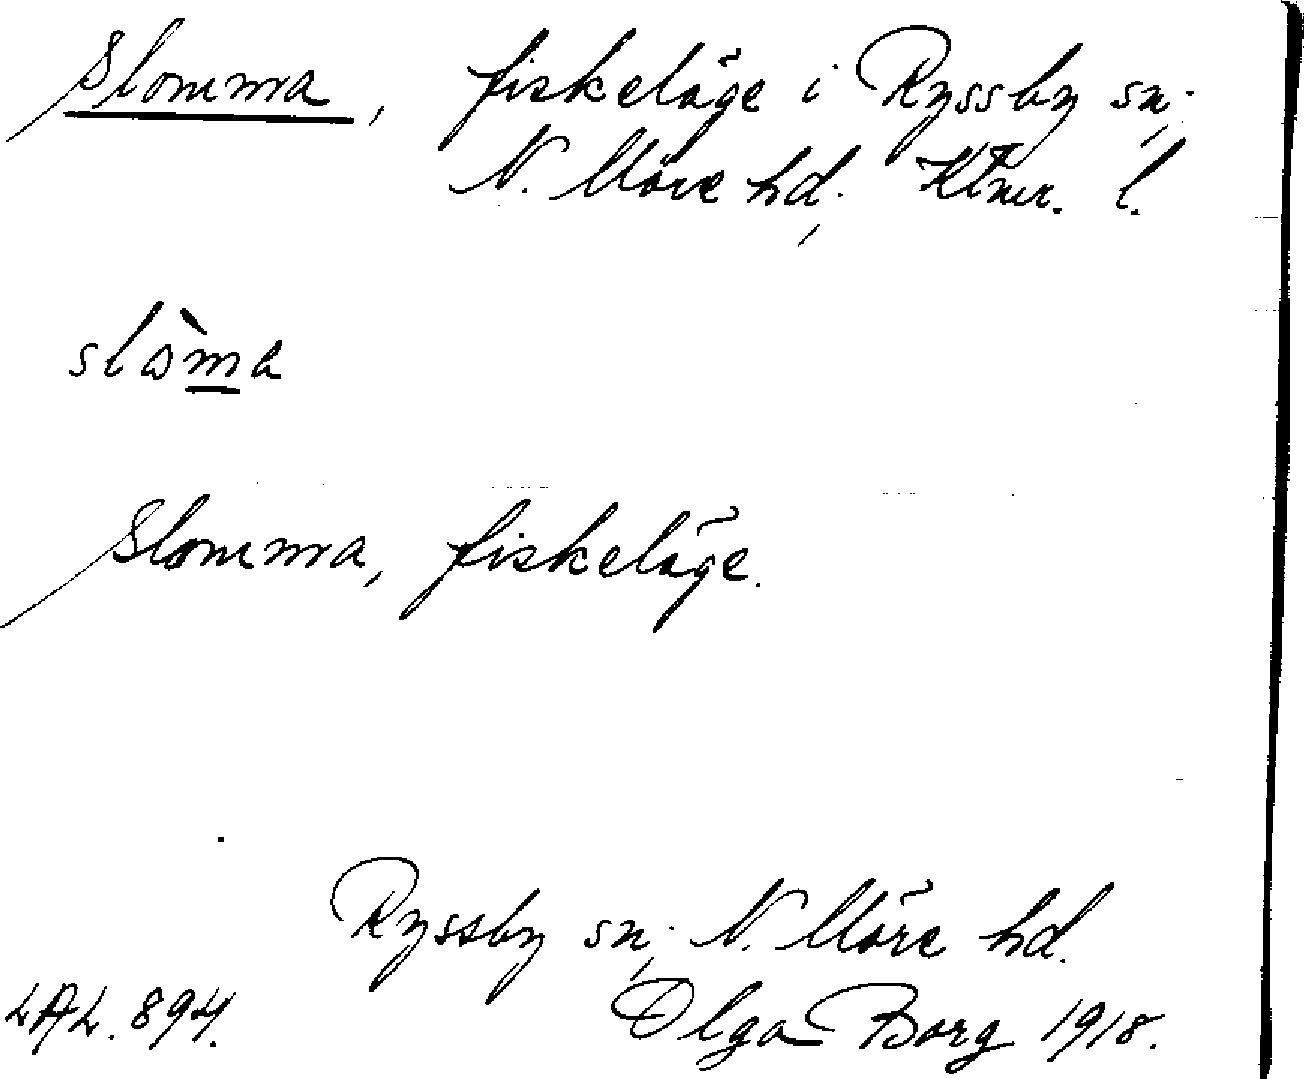 Slomma, fiskeläge i Ryssby sn.,
N. Möre hd., Klmr. l.
slòma
Slomma, fiskeläge.
Ryssby sn., N. Möre hd.
LAL. 894. Olga Borg 1918.